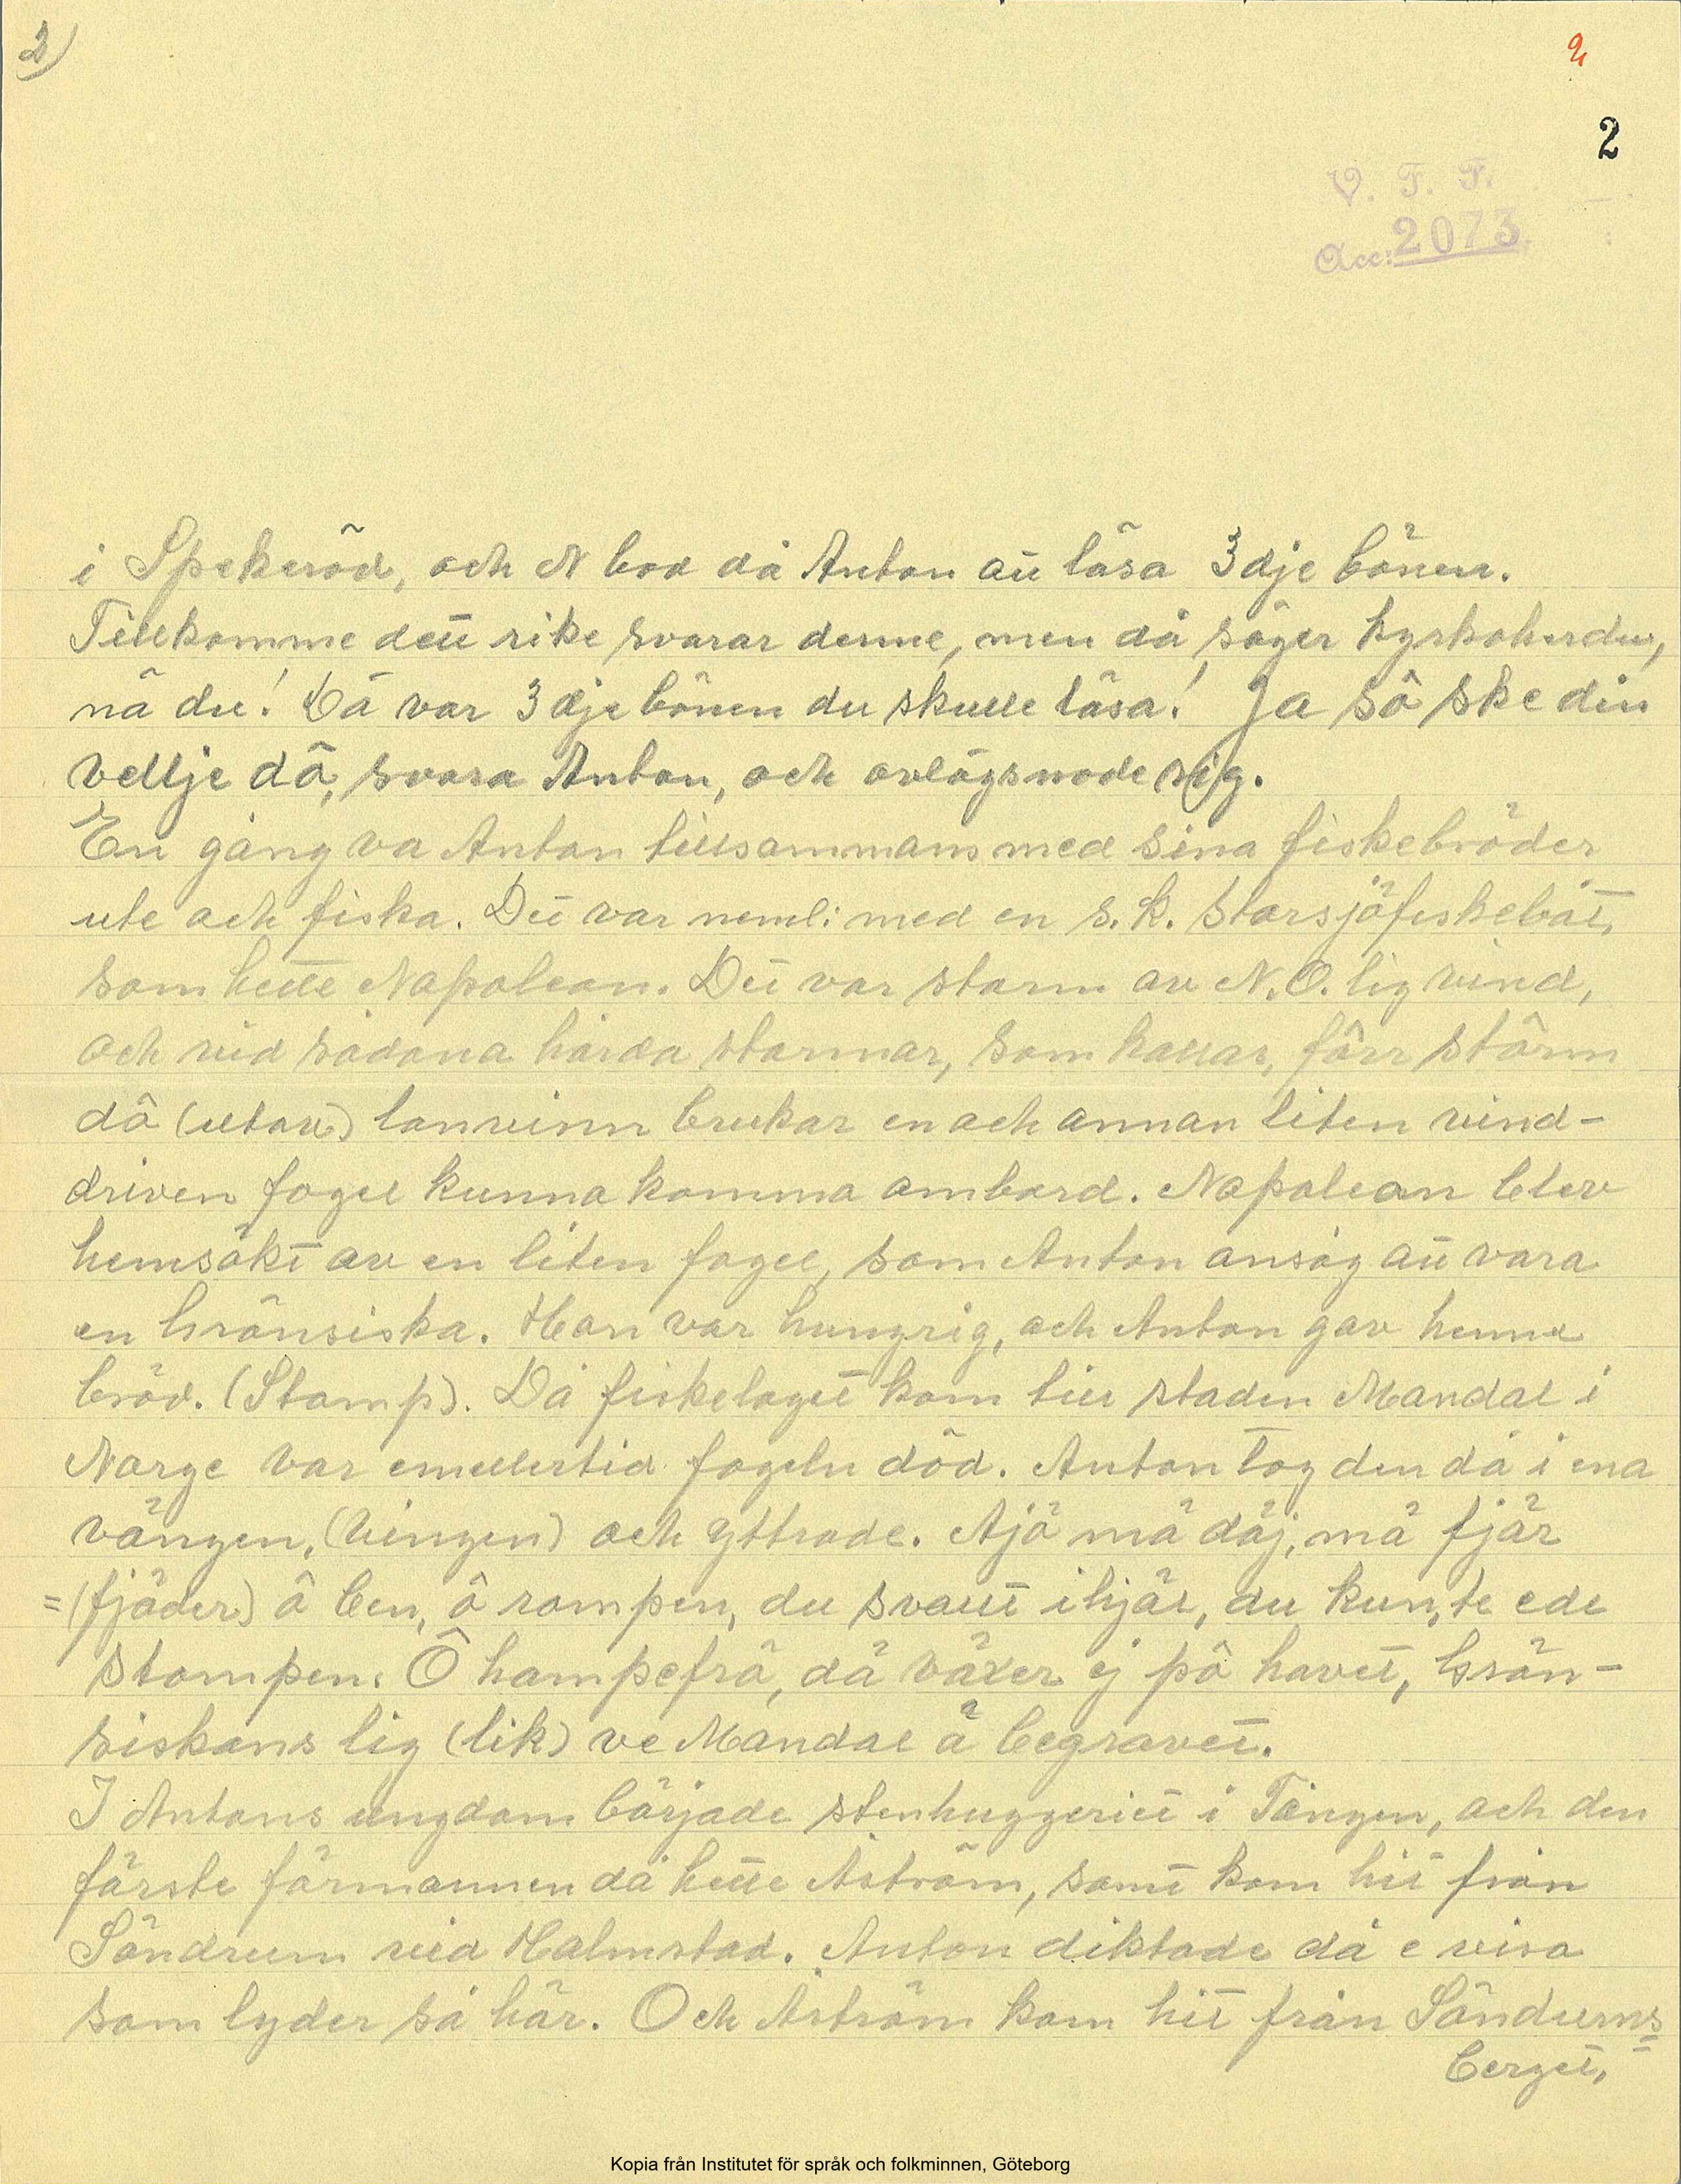 2)
2
2
V. F. F.
Acc: 2073
i Spekeröd, och N bad då Anton att läsa 3dje bönen.
Tillkomme dett rike svarar denne, men då säger kyrkoherden,
nä du! Dä var 3dje bönen du skulle läsa! Ja så ske din
vellje då, svara Anton, och avlägsnade sig.
En gång va Anton tillsammans med sina fiskebröder
ute och fiska. Det var neml: med en s.k. storsjöfiskebåt,
som hette Napolean. Det var storm av N.O. lig vind,
och vid sådana hårda stormar, som kallas, fårr stårm
då (utav) lanvinn brukar en och annan liten vind-
driven fogel kunna komma ombord. Napolean blev
hemsökt av en liten fogel, som Anton ansåg att vara
en Grönsiska. Hon var hungrig, och Anton gav henne
bröd. (Stomp). Då fiskelaget kom till staden Mandal i
Norge var emellertid fogeln död. Anton tog den då i ena
vängen, (vingen) och yttrade. Ajö mä däj, mä fjär
=(fjäder) å ben, å rompen, du svalt ihjäl, du kun,te ede
stompen. Å hampefrö, dä växer ej på havet, Grön-
siskans lig (lik) ve Mandal ä begravet.
I Antons ungdom började stenhuggeriet i Tången, och den
förste förmannen då hette Åström, samt kom hit från
Söndrum vid Halmstad. Anton diktade då e visa
som lyder så här. Och Åström kom hit från Söndrums=
berget,
Kopia från Institutet för språk och folkminnen, Göteborg